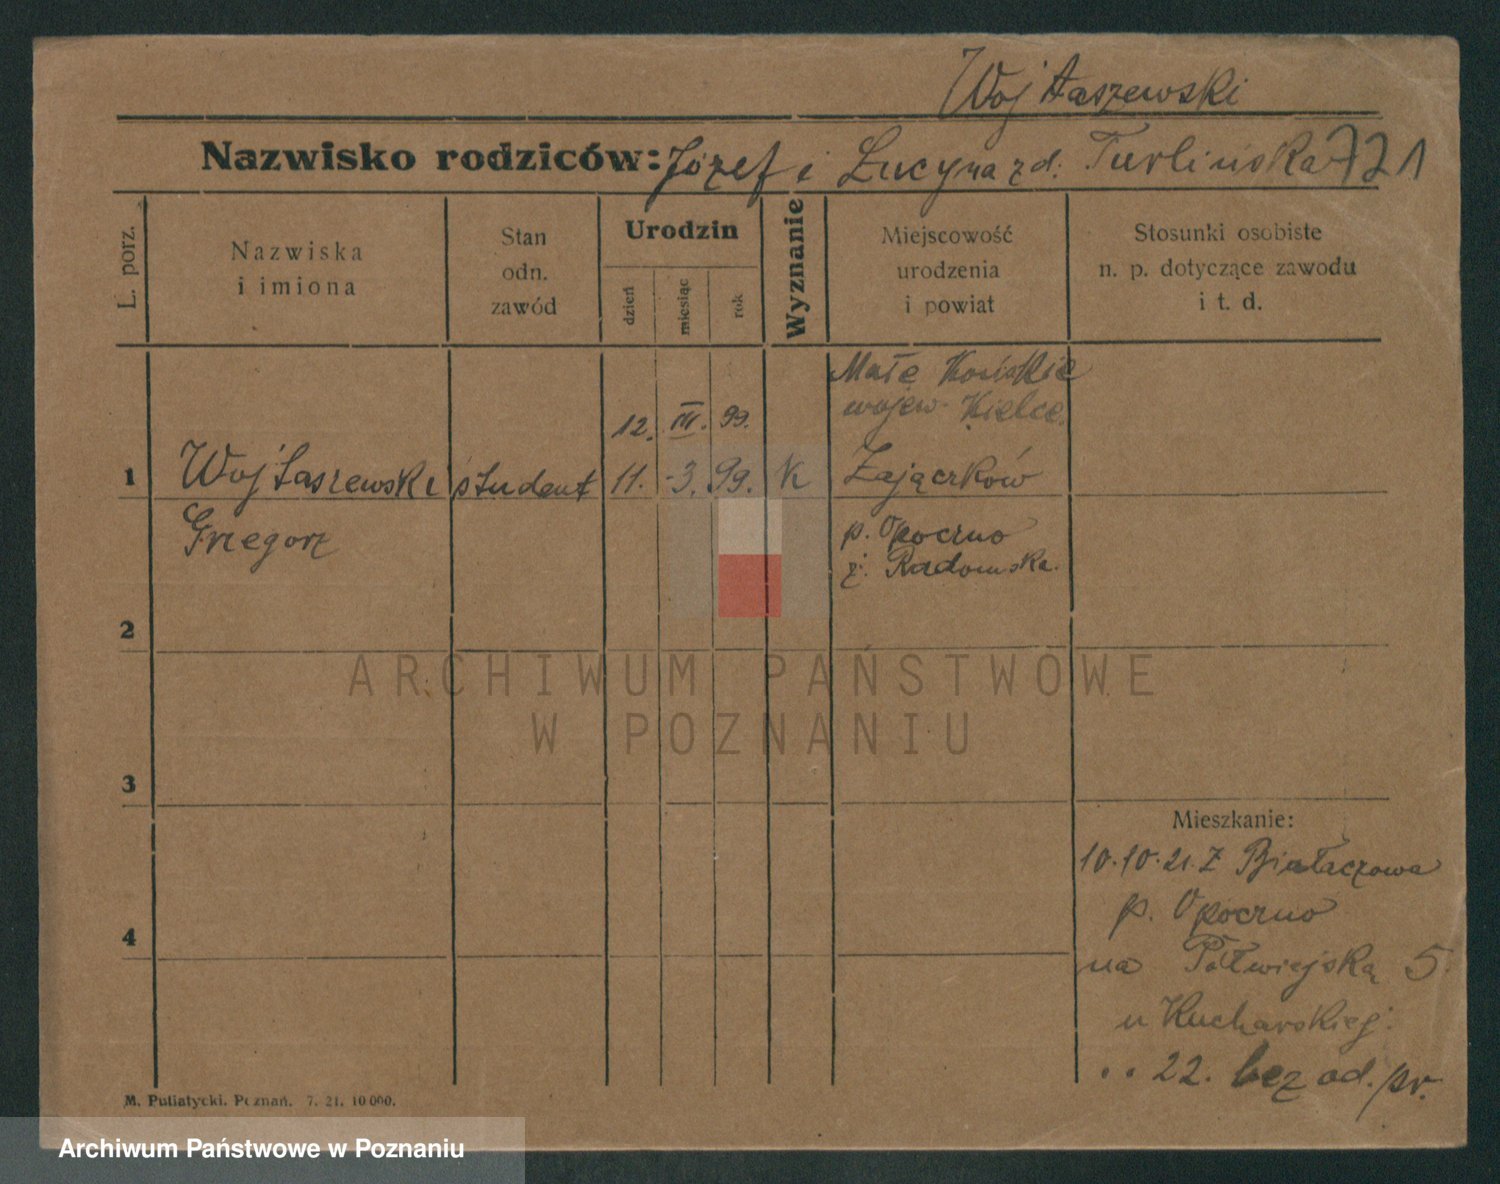 Wojtaszewski
Nazwisko rodziców: Józef i Lucyna zd. Turlińska 721
L. porz.
Nazwiska
i imiona
Stan
odn.
zawód
Urodzin
dzień
miesiąc
rok
Wyznanie
Miejscowość
urodzenia
i powiat
Stosunki osobiste
n. p. dotyczące zawodu
i t. d.
Małe Końskie
wojew. Kielce
12. III. 99.
1 Wojtaszewski student 11. 3. 99. K Zajączków
Grzegorz
p. Opoczno
z. Radomska.
2
ARCHIWUM PAŃSTWOWE
W POZNANIU
3
Mieszkanie:
10.10.21. z Białaczowa
p. Opoczno
4
na Półwiejską 5.
u Kucharskiej.
. . 22. bez od. pr.
M. Putiatycki. Poznań. 7. 21. 10 000.
Archiwum Państwowe w Poznaniu